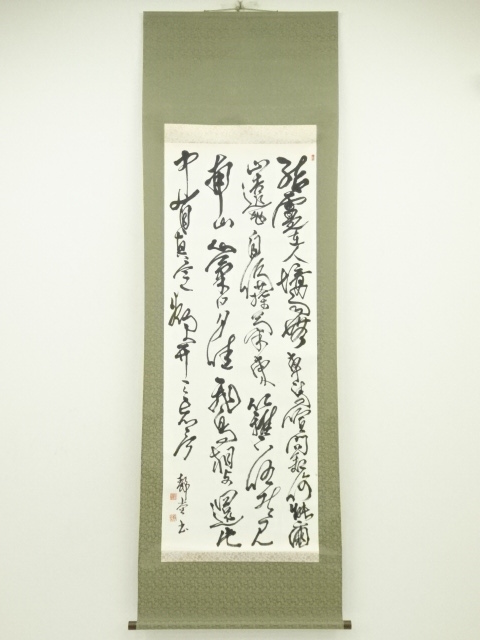 結廬在人境而無車馬喧問君何能爾
心遠地自偏採菊東籬下悠然見
南山山気日夕佳飛鳥相与還此
中有真意欲弁已忘言
静堂書